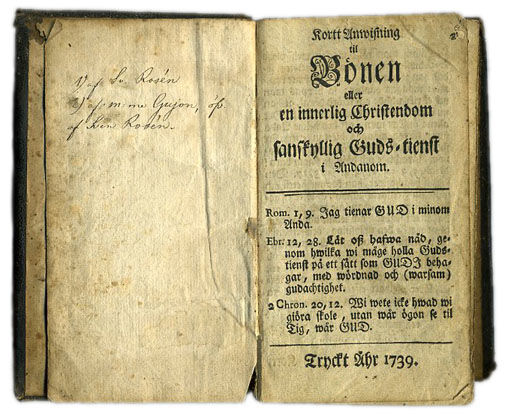 1) af Sv. Rosén
2) af m me Gujon, öfs.
af Sven Rosén.
Kortt Anwisning
til
Bönen
eller
en innerlig Christendom
och
sanskyllig Guds-tienst
i Andanom.
Rom. 1, 9. Jag tienar GUD i minom
Anda.
Ebr. 12, 28. Låt oß hafwa nåd, ge-
nom hwilka wi måge holla Guds-
tienst på ett sätt som GUDI beha-
gar, med wördnad och (warsam)
gudachtighet.
2 Chron. 20, 12. Wi wete icke hwad wi
giöra skole, utan wår ögon se til
Tig, wår GUD.
Tryckt Åhr 1739.